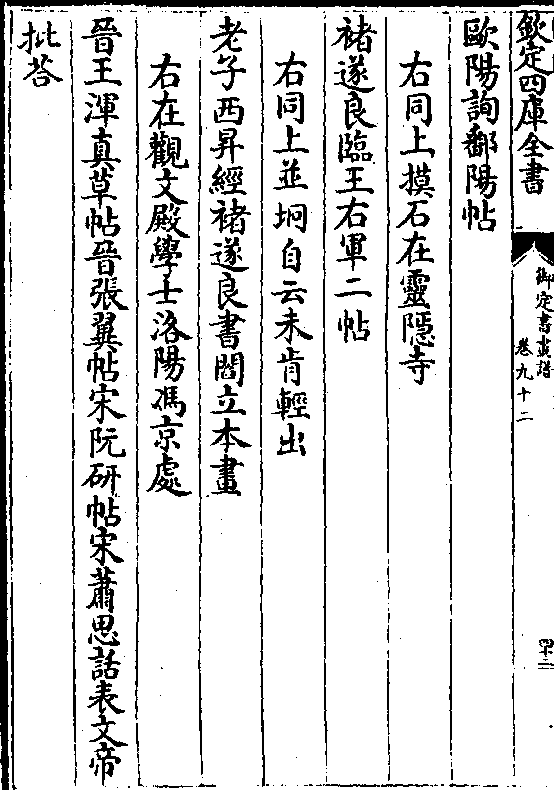 欽定四庫全書
御定書畫譜
卷九十二
四十二
歐陽詢鄱陽帖
右同上摸石在靈隠寺
褚遂良臨王右軍二帖
右同上並坰自云未肯輕出
老子西昇經禇遂良書閻立本畫
右在觀文殿學士洛陽馮京處
晉王渾真草帖晉張翼帖宋阮研帖宋蕭思話表文帝
批荅